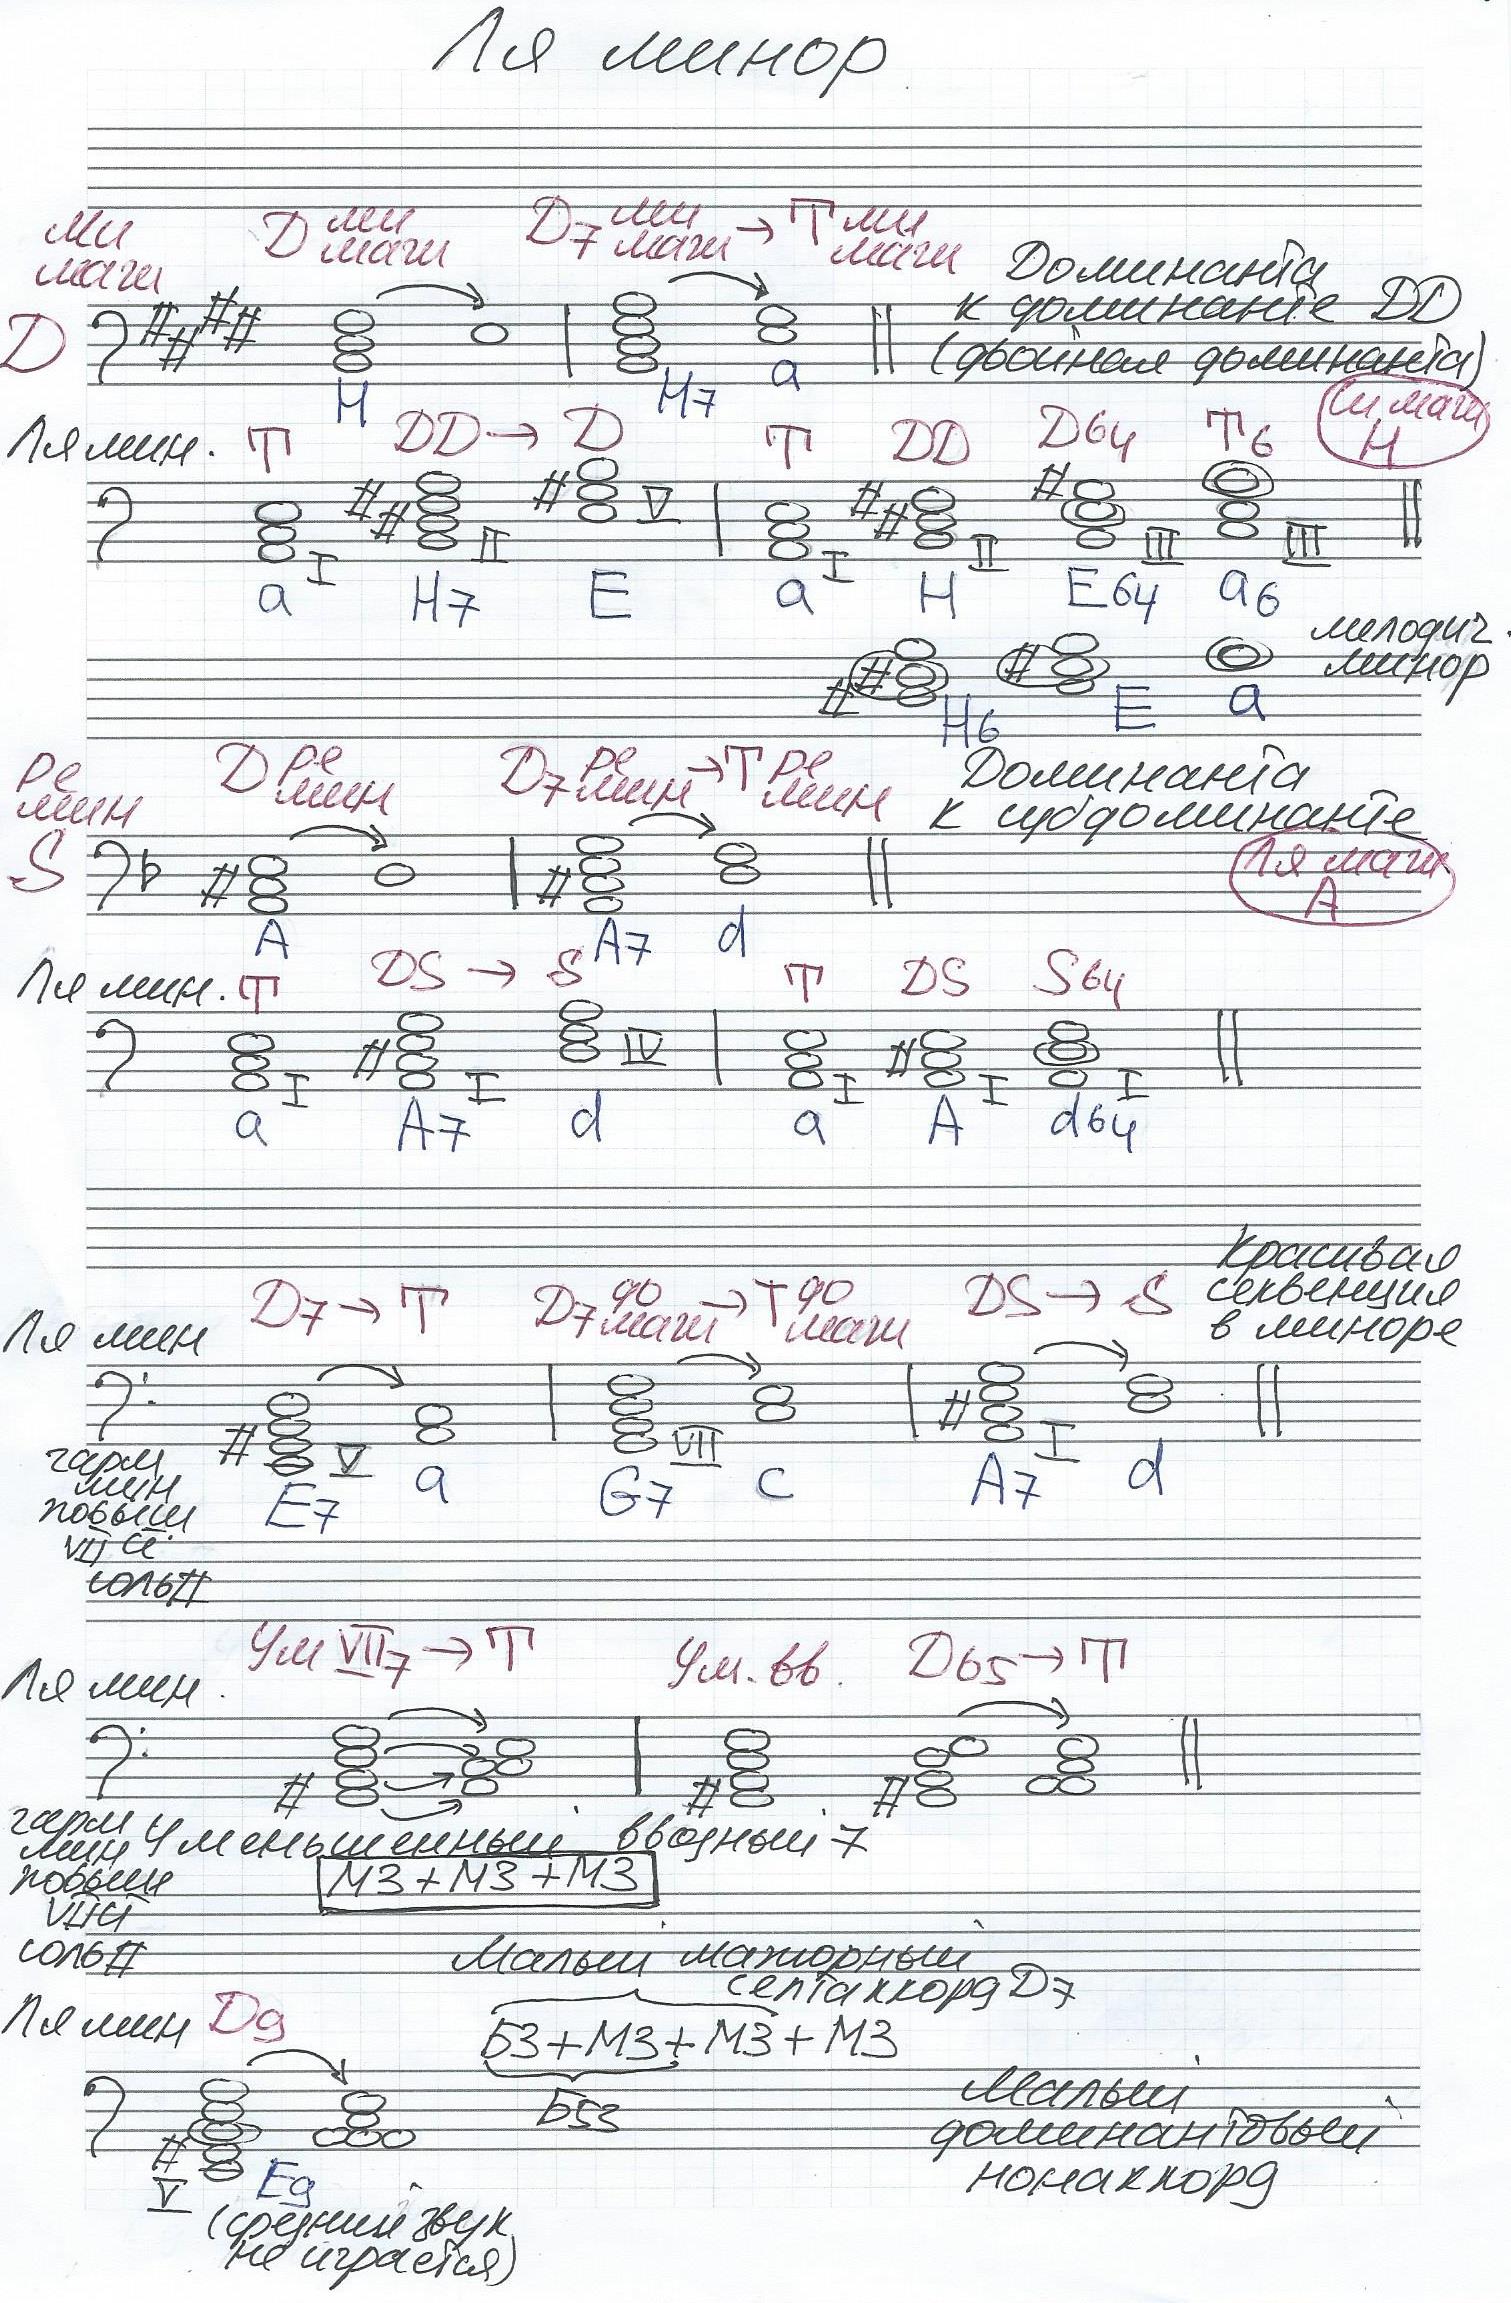 Ля минор
ми маж D ми маж D7 ми маж → Т ми маж
Доминанта
к доминанте DD
(двойная доминанта)
D H H7 a
си маж
H
Ля мин. Т DD → D Т DD D64 Т6
I II V I II III III
a H7 E a H E64 a6
мелодич.
минор
H6 E a
ре мин D ре мин D7 ре мин → Т ре мин
Доминанта
к субдоминанте
S
Ля маж
A
A A7 d
Ля мин. Т DS → S Т DS S64
I I IV I I I
a A7 d a A d64
Красивая
секвенция
в миноре
D7 → Т D7 до маж → Т до маж DS → S
Ля мин
V VII I
E7 a G7 C A7 d
гарм
мин
повыш
VII ст.
соль#
Ум VII7 → Т Ум. вв. D65 → Т
Ля мин.
гарм
мин
повыш
VII ст
соль#
Уменьшенный вводный 7
М3+М3+М3
Малый мажорный
септаккорд D7
Ля мин D9
Б3+М3+М3+М3
Б53
Малый
доминантовый
нонаккорд
V E9
(средний звук
не играется)